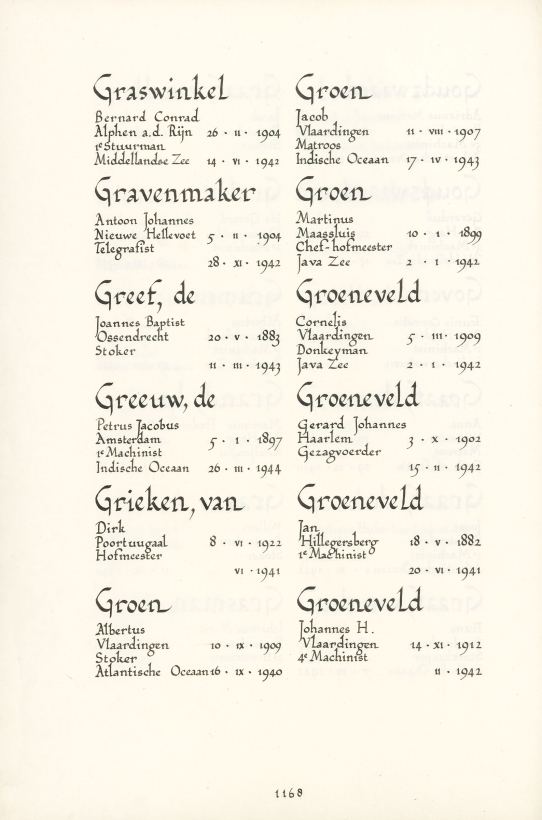 Graswinkel
Bernard Conrad
Alphen a.d. Rijn 26 · II · 1904
1e Stuurman
Middellandse Zee 14 · VI · 1942
Gravenmaker
Antoon Johannes
Nieuwe Hellevoet 5 · II · 1904
Telegrafist
28 · XI · 1942
Greef, de
Joannes Baptist
Ossendrecht 20 · V · 1883
Stoker
11 · III · 1943
Greeuw, de
Petrus Jacobus
Amsterdam 5 · 1 · 1897
1e Machinist
Indische Oceaan 26 · III · 1944
Grieken, van
Dirk
Poortuugaal 8 · VI · 1922
Hofmeester
VI · 1941
Groen
Albertus
Vlaardingen 10 · IX · 1909
Stoker
Atlantische Oceaan 16 · IX · 1940
Groen
Jacob
Vlaardingen 11 · VIII · 1907
Matroos
Indische Oceaan 17 · IV · 1943
Groen
Martinus
Maassluis 10 · 1 · 1899
Chef-hofmeester
Java Zee 2 · 1 · 1942
Groeneveld
Cornelis
Vlaardingen 5 · III · 1909
Donkeyman
Java Zee 2 · 1 · 1942
Groeneveld
Gerard Johannes
Haarlem 3 · X · 1902
Gezagvoerder
15 · II · 1942
Groeneveld
Jan
Hillegersberg 18 · V · 1882
1e Machinist
20 · VI · 1941
Groeneveld
Johannes H.
Vlaardingen 14 · XI · 1912
4e Machinist
II · 1942
1168